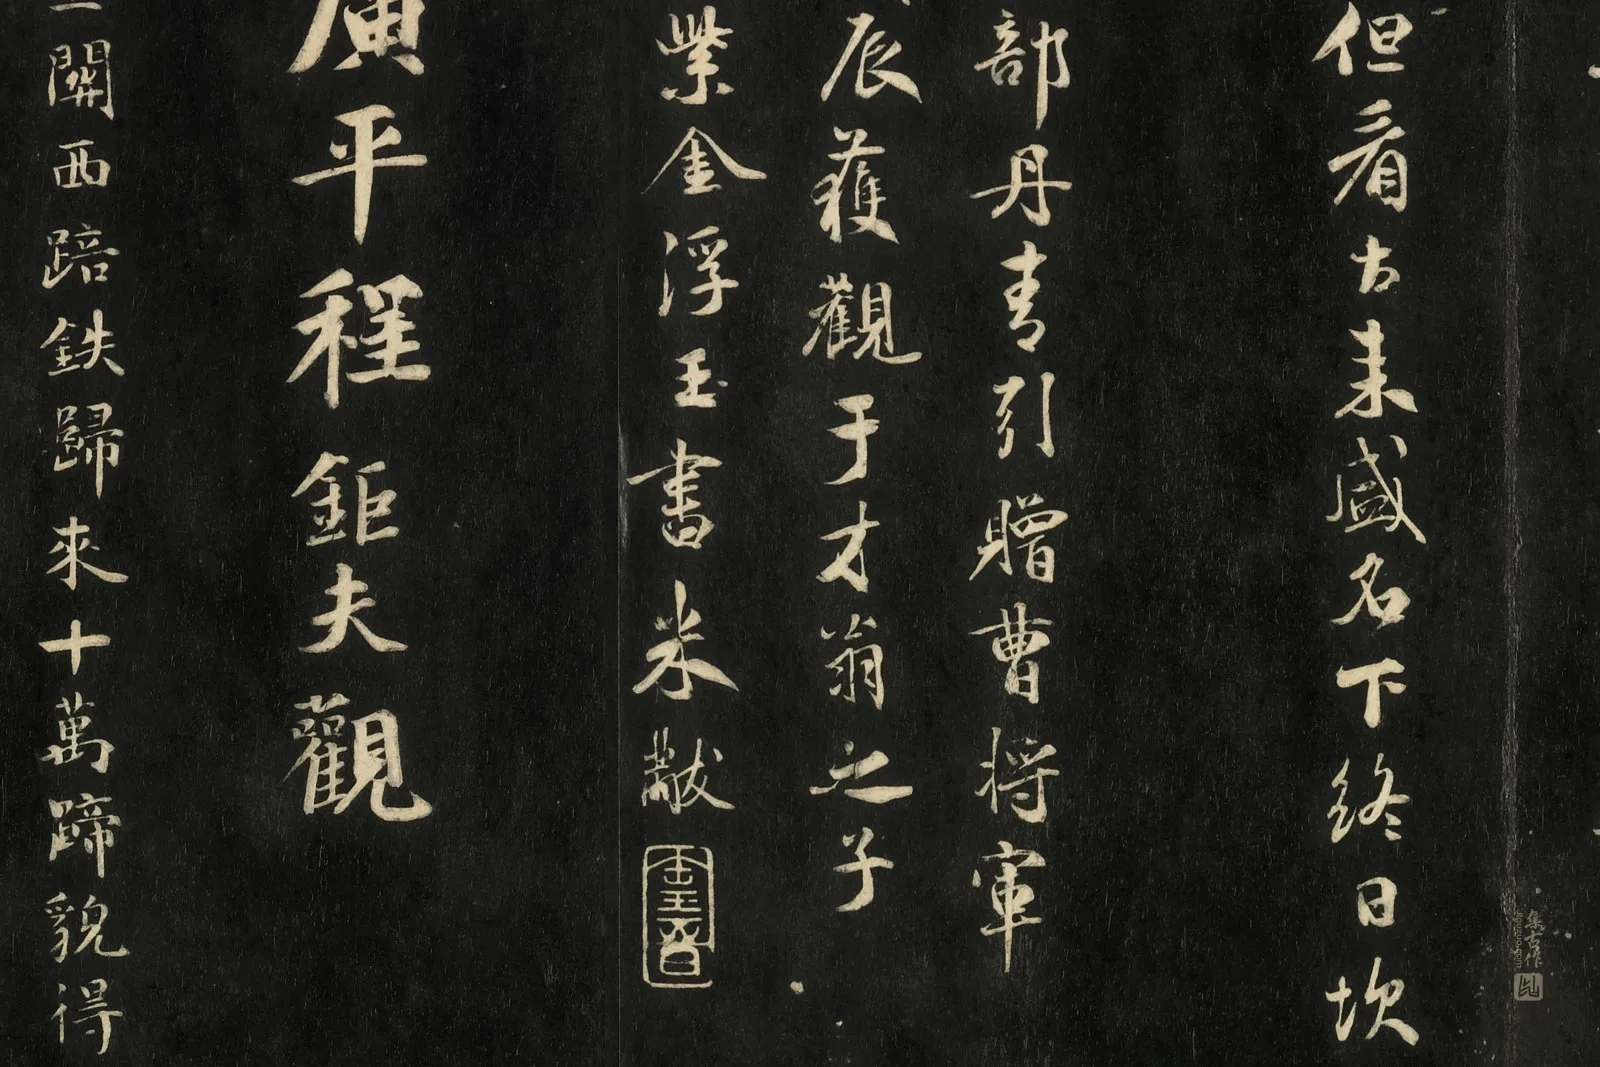 但看古来盛名下終日坎
部丹青引贈曹将軍
辰獲觀于才翁之子
紫金浮玉書米黻
廣平程鉅夫觀
關西踣鉄歸來十萬蹄貌得
集古作